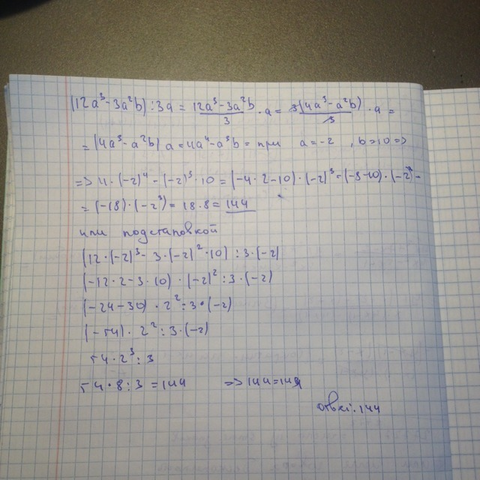 (12a³-3a²b):3a = 12a³-3a²b/3 · a = 3(4a³-a²b)/3 · a =
= (4a³-a²b) a = 4a⁴-a³b = при a=-2, b=10 =>
=> 4·(-2)⁴-(-2)³·10 = (-4·2-10)·(-2)³ = (-8-10)·(-2)³ =
= (-18)·(-2³) = 18·8 = 144
или подстановкой
(12·(-2)³-3·(-2)²·10):3·(-2)
(-12·2-3·10)·(-2)²:3·(-2)
(-24-30)·2²:3·(-2)
(-54)·2²:3·(-2)
54·2³:3
54·8:3=144 => 144=144
ответ: 144